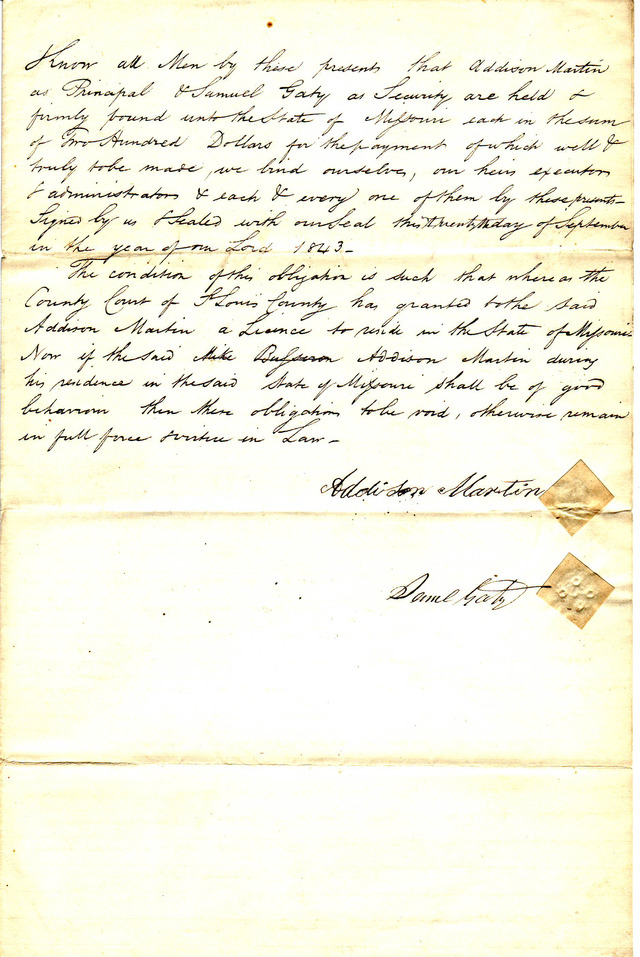 Know all Men by these presents that Addison Martin
as Principal & Samuel Gaty as Security are held &
firmly bound unto the State of Missouri each in the sum
of Two Hundred Dollars for the payment of which well &
truly to be made, we bind ourselves, our heirs executors
& administrators & each & every one of them by these presents–
Signed by us & Sealed with our Seal this day of September
in the year of our Lord 1843–
The condition of this obligation is such that whereas the
County Court of St Louis County has granted to the said
Addison Martin a Licence to reside in the State of Missouri
Now if the said Mike Addison Martin during
his residence in the said State of Missouri shall be of good
behaviour then these obligation to be void, otherwise remain
in full force & virtue in Law–
Addison Martin
Saml Gaty